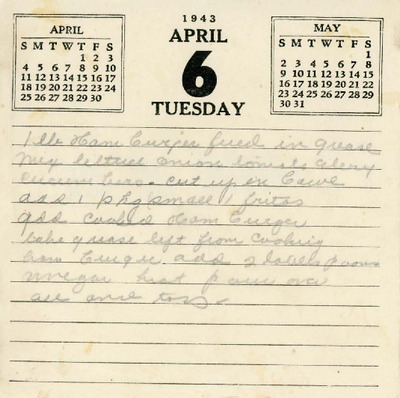 1943
APRIL
6
TUESDAY
APRIL
S M T W T F S
1 2 3
4 5 6 7 8 9 10
11 12 13 14 15 16 17
18 19 20 21 22 23 24
25 26 27 28 29 30
MAY
S M T W T F S
1
2 3 4 5 6 7 8
9 10 11 12 13 14 15
16 17 18 19 20 21 22
23 24 25 26 27 28 29
30 31
1 lb Ham Burger fried in grease
mix lettuce onion tomato celery
cucumbers. cut up in bowl
add 1 pkg small fritos
add cooked Ham Burger
take grease left from cooking
ham burger add 2 tablespoons
vinegar heat pour over
all and toss.